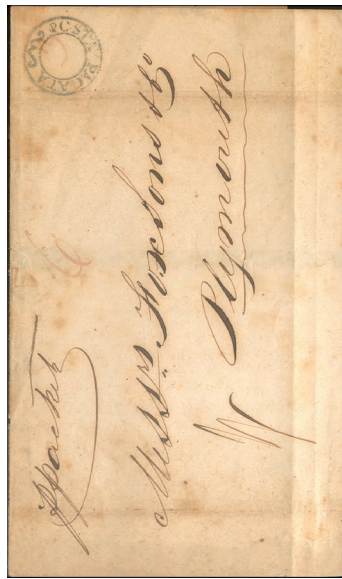 POSTA PAGATA
p packet
Messrs. Fox Sons & Co
Plymouth